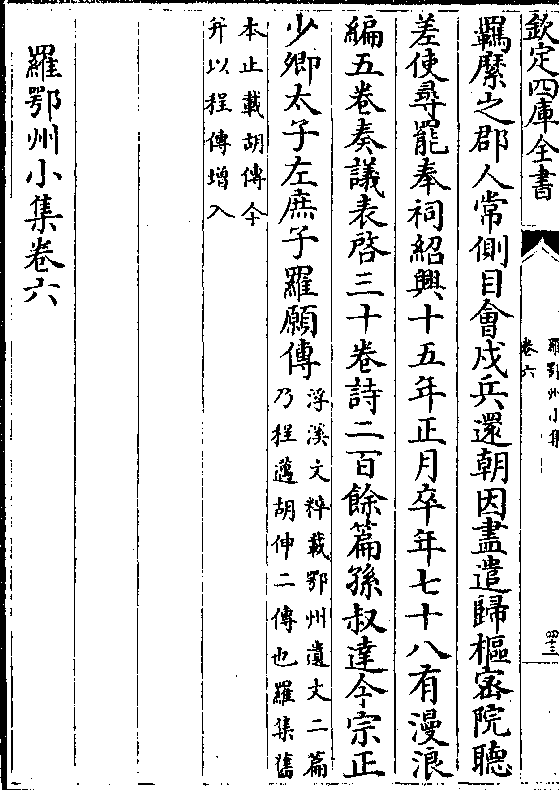 欽定四庫全書
羅鄂州小集
卷六
四十三
羈縻之郡人常側目會戍兵還朝因盡遣歸樞密院聴
差使尋罷奉祠紹興十五年正月卒年七十八有漫浪
編五卷奏議表啓三十卷詩二百餘篇孫叔達今宗正
少卿太子左庶子羅願傳
浮溪文粹載鄂州遺文二篇
乃程邁胡伸二傳也羅集舊
本止載胡傳今
并以程傳增入
羅鄂州小集卷六